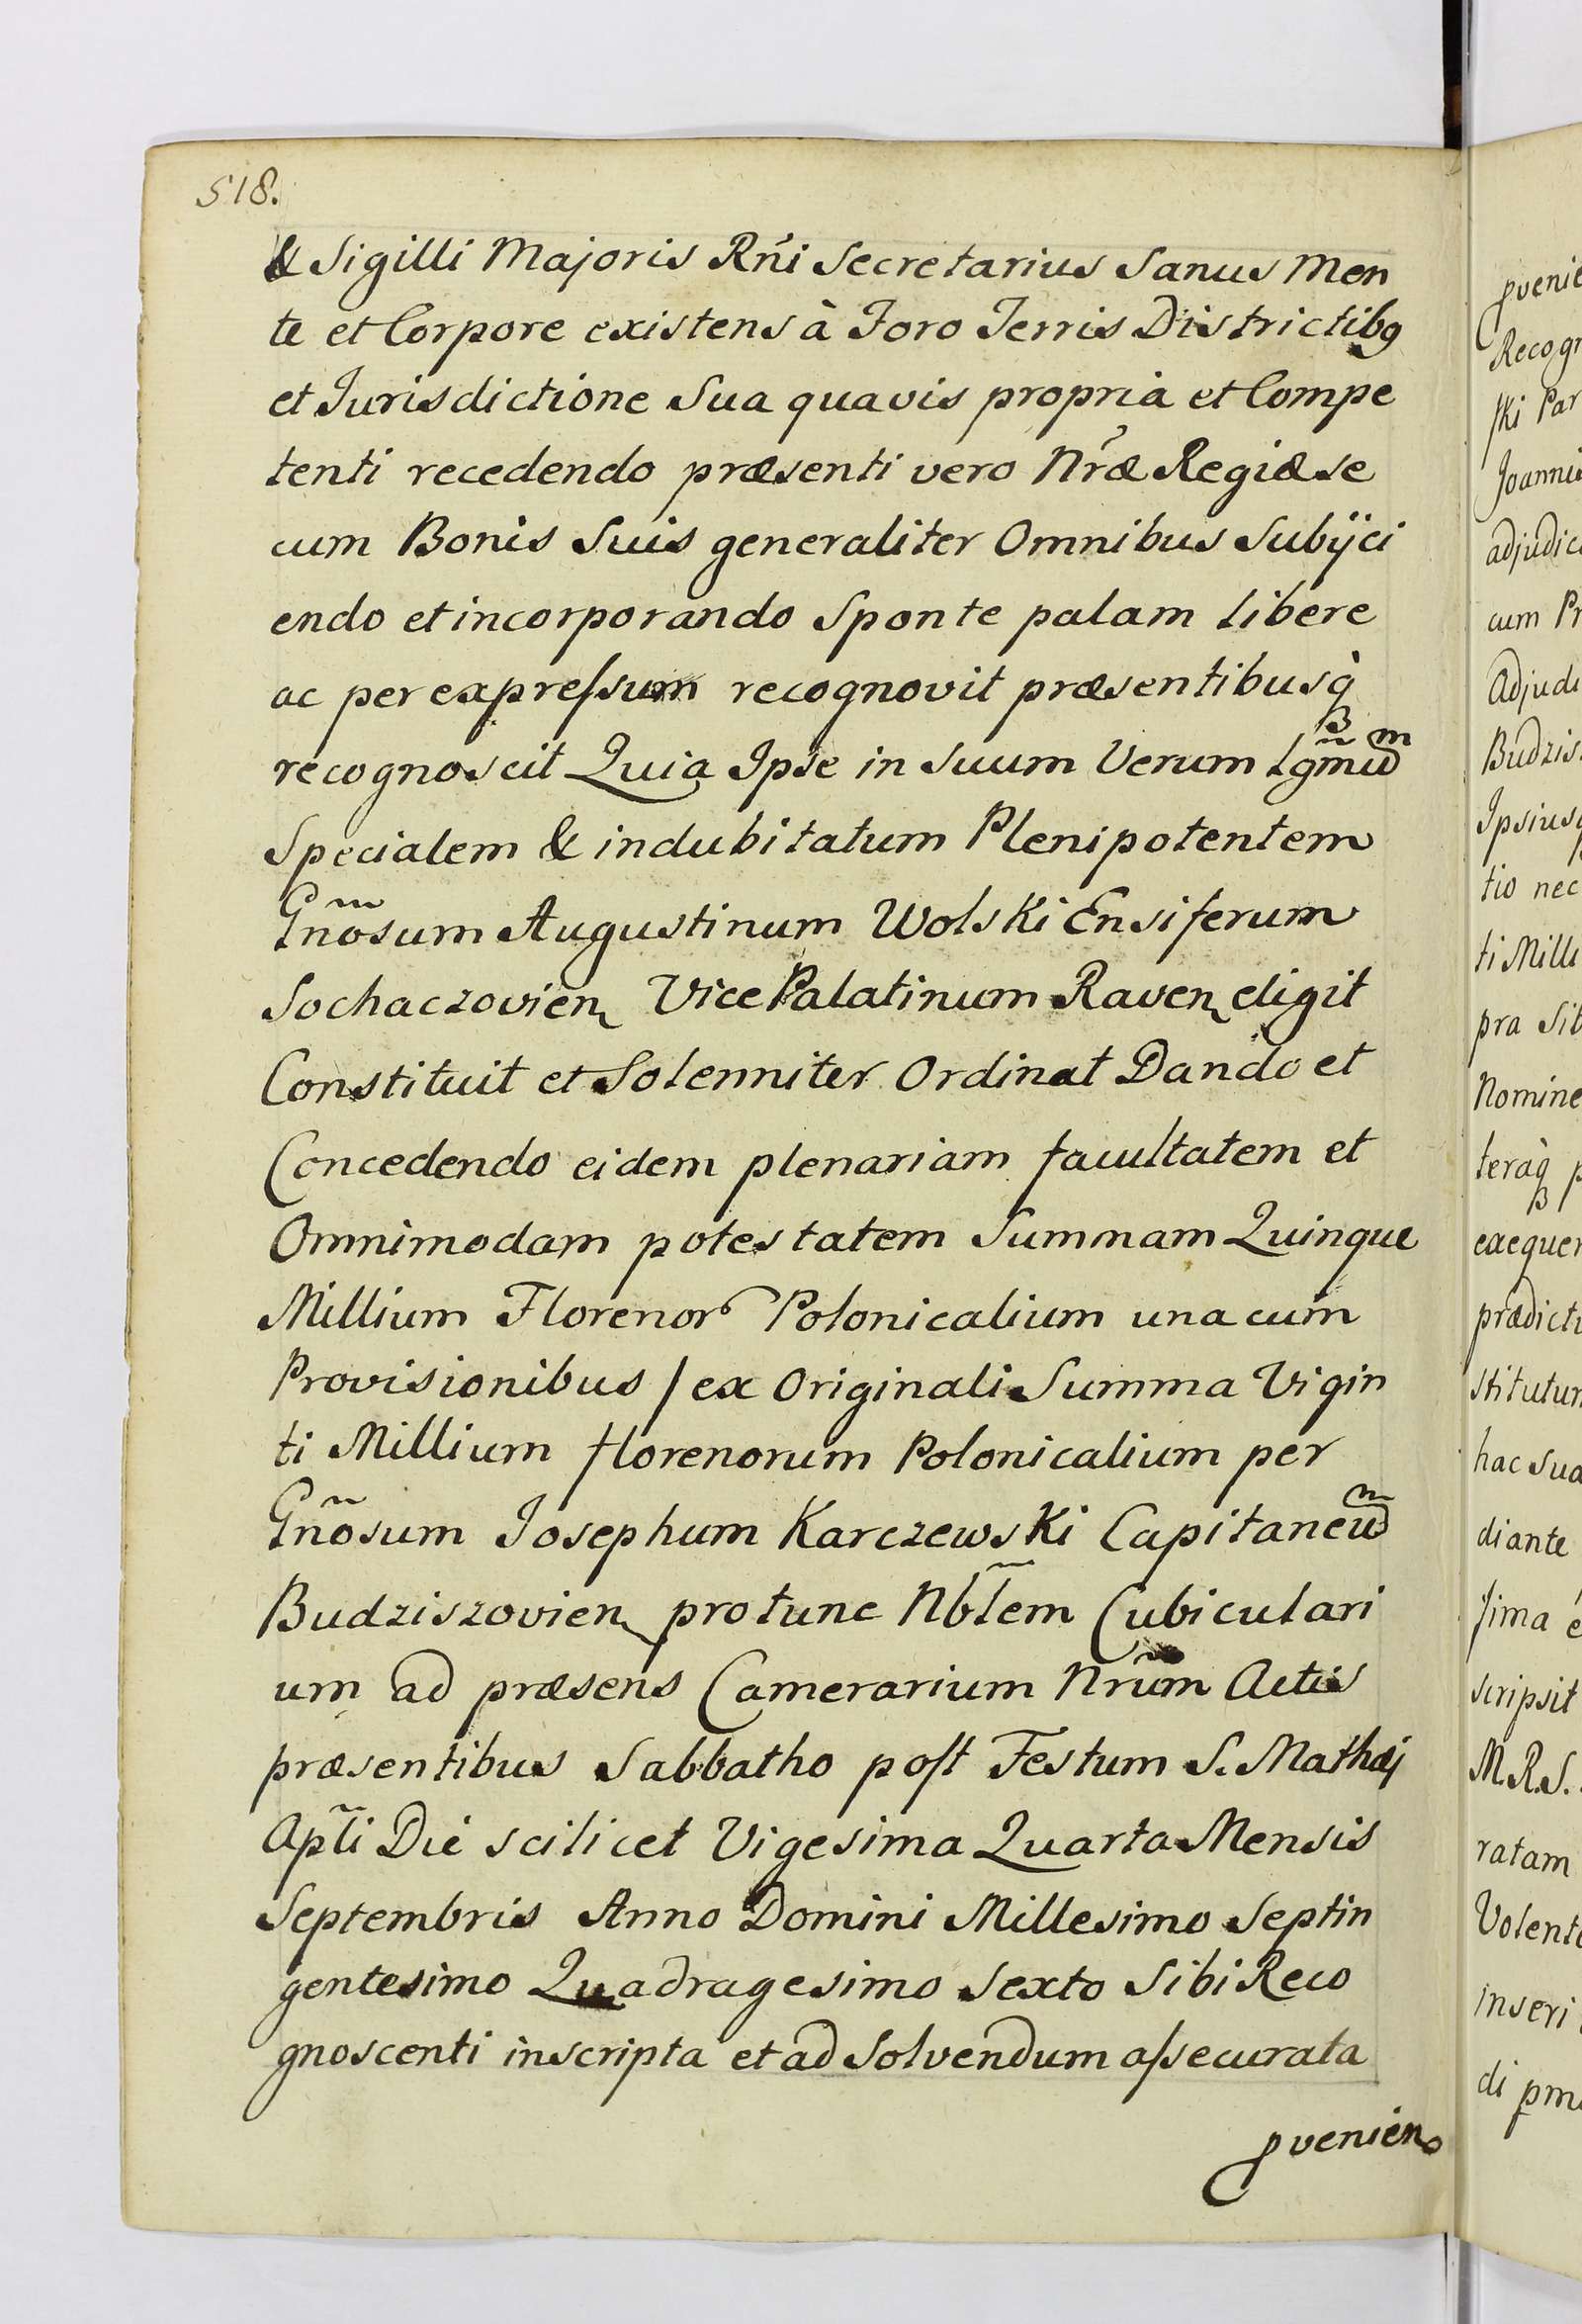 518.
& Sigilli Majoris Rñi Secretarius Sanus Men
te et Corpore existens à Foro Terris Districtibg
et Jurisdictione Sua quavis propria et Compe
tenti recedendo præsenti vero Nr̃æ Regiæ se
cum Bonis Suis generaliter Omnibus Subijci
endo et incorporando Sponte palam libere
ac per expreſsum recognovit præsentibusq̀
recognoscit Quia Ipse in Suum Verum Lgm̃um
Specialem & indubitatum Plenipotentem
Gñosum Augustinum Wolski Ensiferum
Sochaczovien Vice Palatinum Raven eligit
Constituit et Solenniter Ordinat Dando et
Concedendo eidem plenariam facultatem et
Omnimodam potestatem Summam Quinque
Millium Florenor Polonicalium una cum
Provisionibus / ex Originali Summa Vigin
ti Millium florenorum Polonicalium per
Gñosum Josephum Karczewski Capitaneum
Budziszovien pro tunc Nbl̃em Cubiculari
um ad præsens Camerarium Nrũm Actis
præsentibus Sabbatho poſt Festum S. Mathæj
Apl̃i Die scilicet Vigesima Quarta Mensis
Septembris Anno Domini Millesimo Septin
gentesimo Quadragesimo Sexto Sibi Reco
gnoscenti inscripta et ad Solvendum aſsecurata
pvenien
pvenie
Recogn
ſki Par
Joannis
adjudic
cum Pr
Adjudi
Budzis
Ipsiusq
tio nec
ti Milli
pra Sib
Nomine
teràq p
exequen
prædicti
stitutum
hac sua
diante
ſima é
scripsit
M.R.S.
ratam
Volent
inseri
di pm